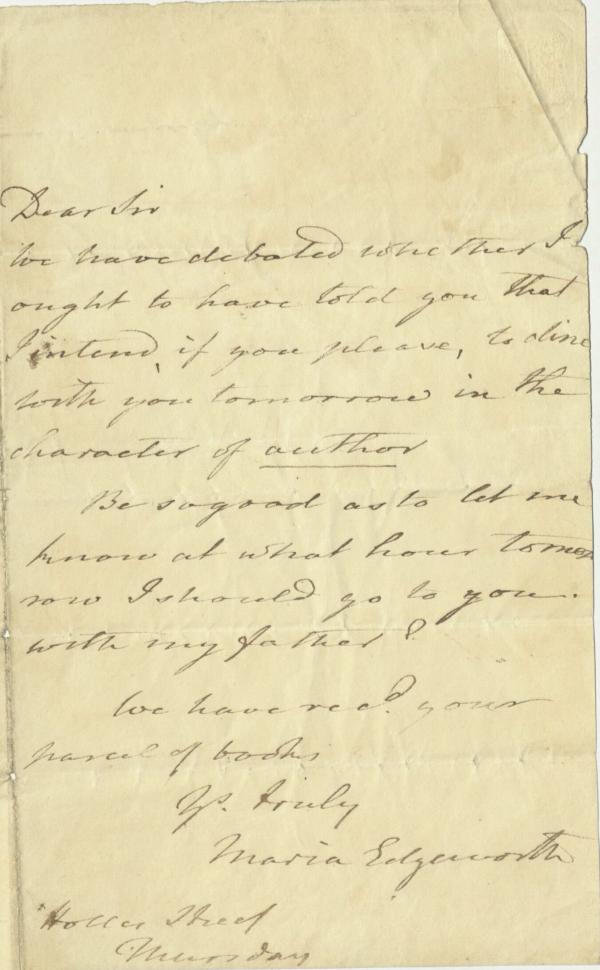 Dear Sir
We have debated whether I
ought to have told you that
I intend, if you please, to dine
with you tomorrow in the
character of author
Be so good as to let me
know at what hour tomor
row I should go to you.
with my father?
We have recd. your
parcel of books
Yrs. truly
Maria Edgeworth
Holles Street
Thursday